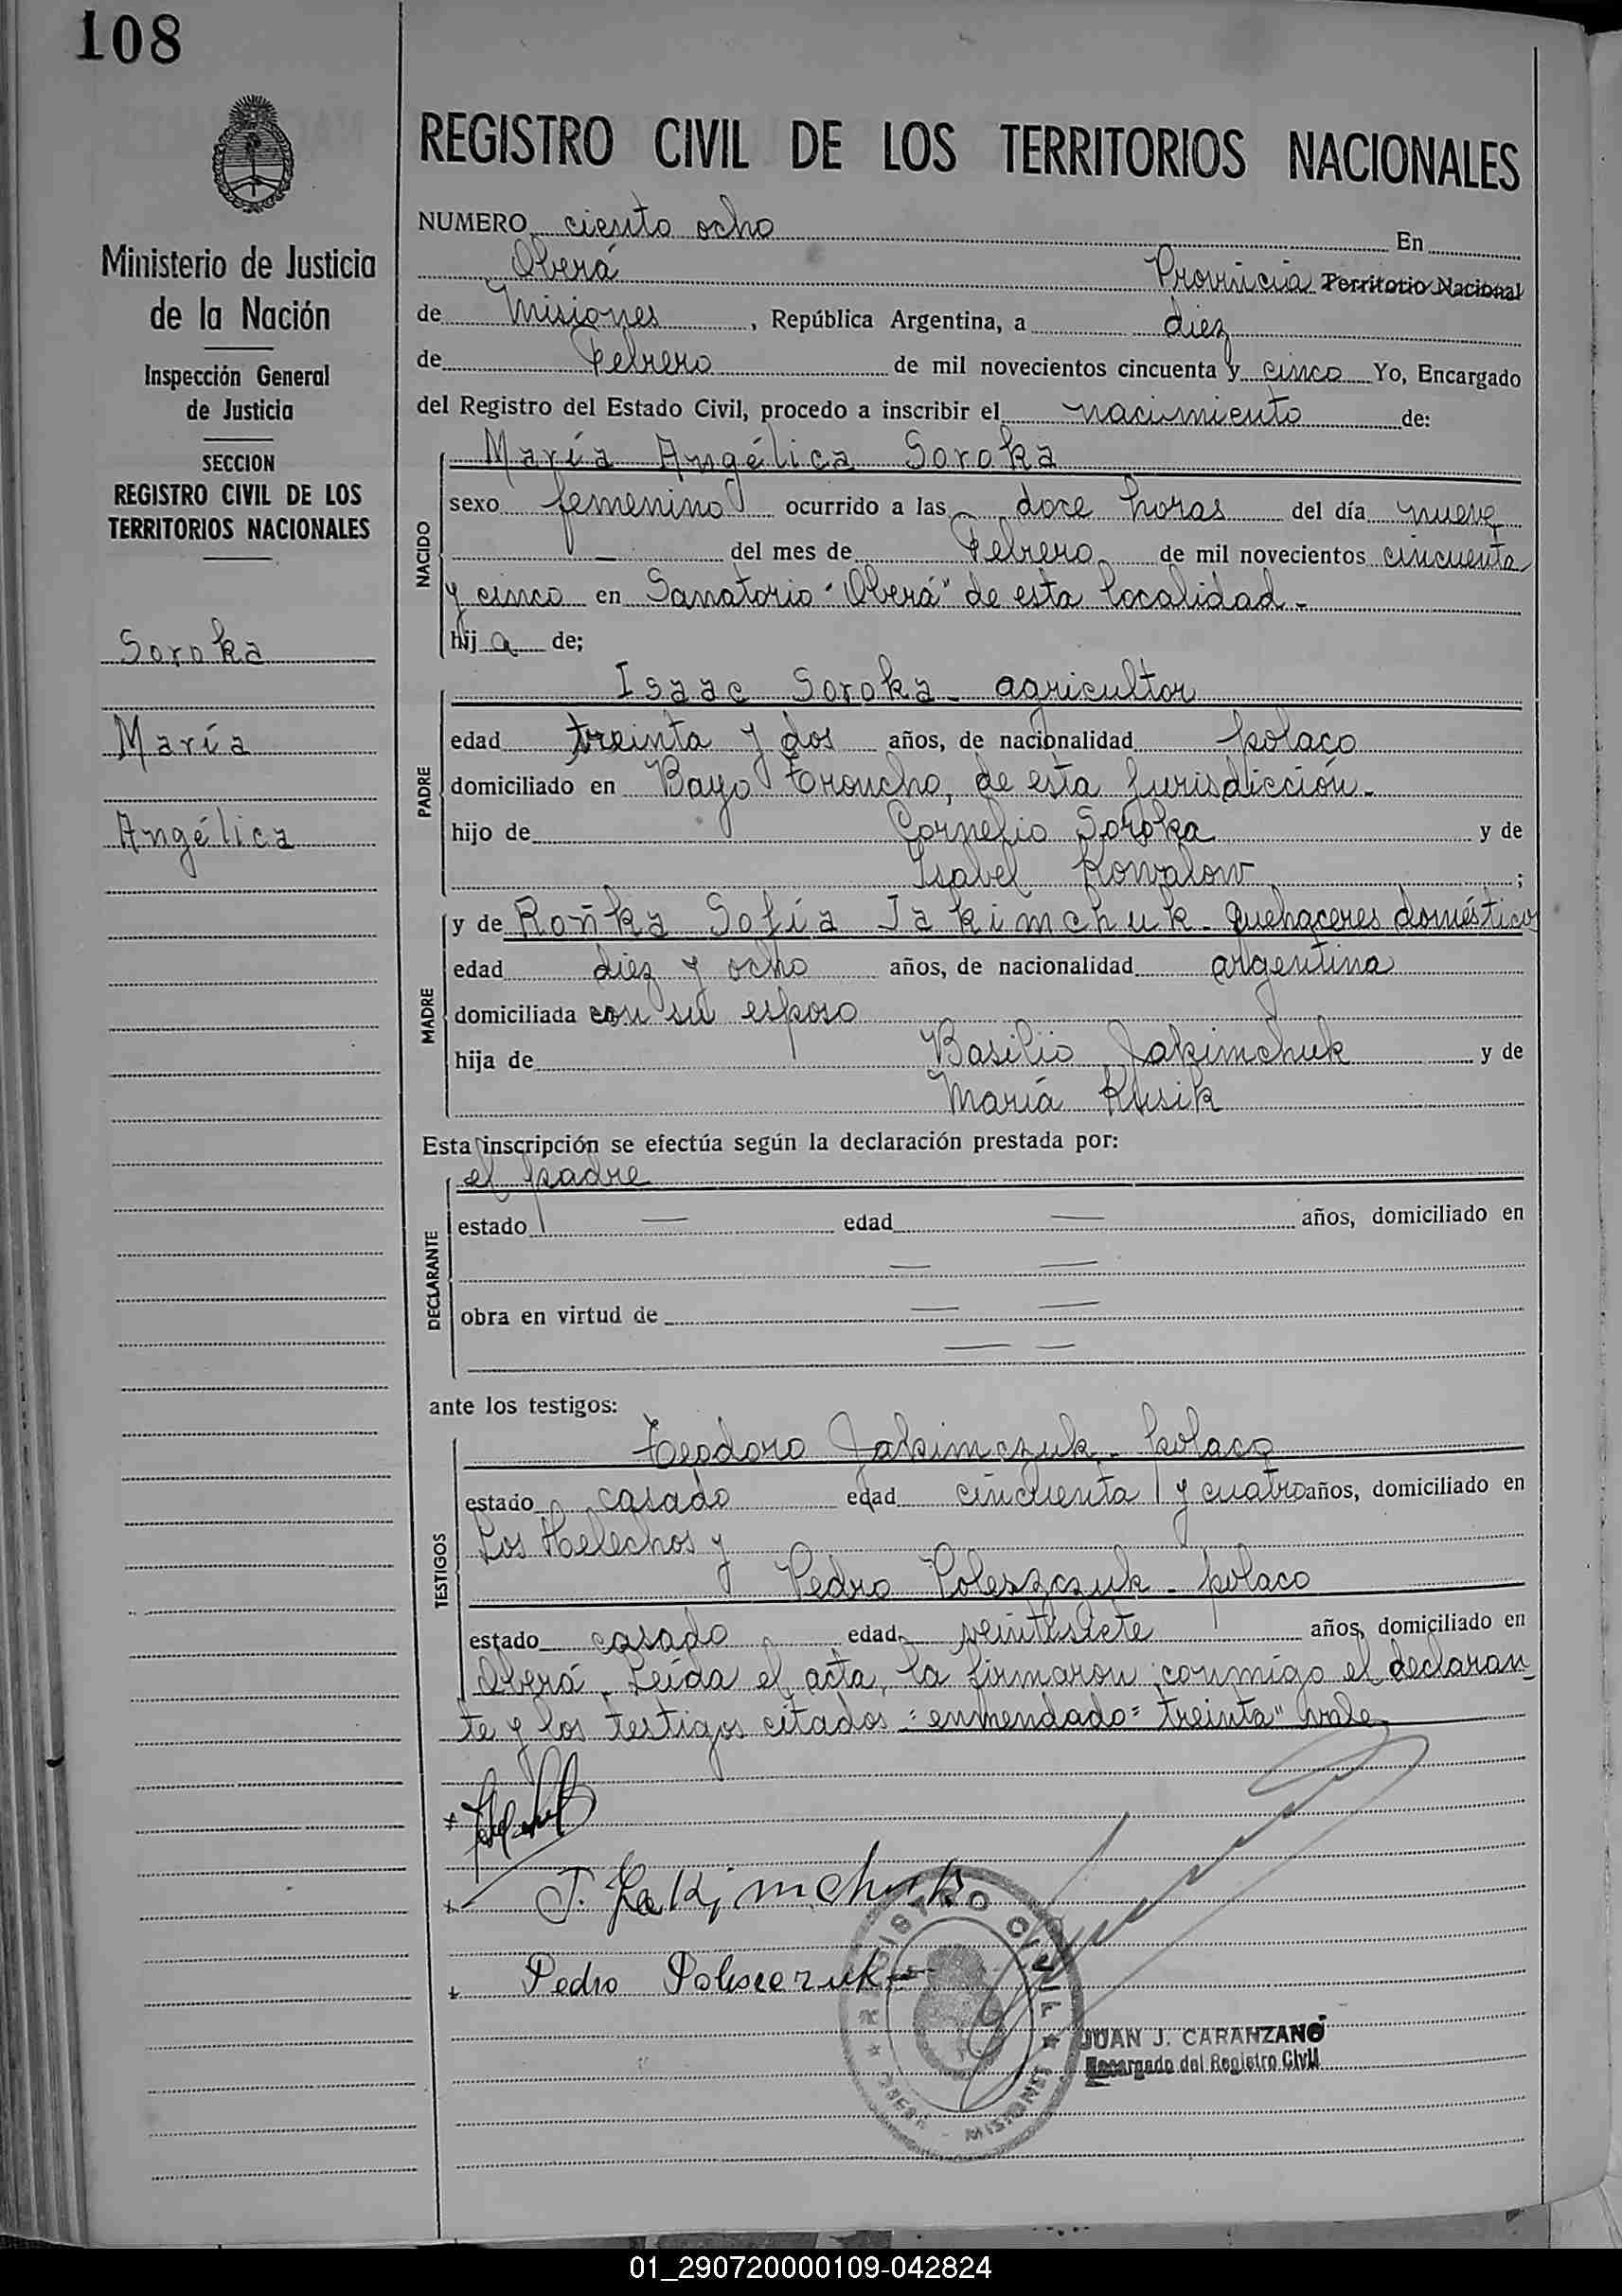 108
Ministerio de Justicia
de la Nación
Inspección General
de Justicia
SECCION
REGISTRO CIVIL DE LOS
TERRITORIOS NACIONALES
Soroka
María
Angélica
REGISTRO CIVIL DE LOS TERRITORIOS NACIONALES
NUMERO ciento ocho En
Oberá Provincia Territorio Nacional
de Misiones, República Argentina, a diez
de Febrero de mil novecientos cincuenta y cinco Yo, Encargado
del Registro del Estado Civil, procedo a inscribir el nacimiento de:
NACIDO
María Angélica Soroka
sexo femenino ocurrido a las doce horas del día nueve
del mes de Febrero de mil novecientos cincuenta
y cinco en Sanatorio "Oberá" de esta localidad.-
hija de;
PADRE
Isaac Soroka - agricultor
edad treinta y dos años, de nacionalidad polaco
domiciliado en Bayo Troncho, de esta jurisdicción.-
hijo de Cornelio Soroka y de
Isabel Kowalow;
MADRE
y de Roñka Sofía Jakimchuk - quehaceres domésticos
edad diez y ocho años, de nacionalidad argentina
domiciliada con su esposo
hija de Basilio Jakimchuk y de
María Kusik
Esta inscripción se efectúa según la declaración prestada por:
DECLARANTE
el padre
estado — edad — años, domiciliado en
— —
obra en virtud de — —
— —
ante los testigos:
TESTIGOS
Teodoro Jakimczuk - polaco
estado casado edad cincuenta y cuatro años, domiciliado en
Los Helechos y
Pedro Poleszczuk - polaco
estado casado edad veintisiete años, domiciliado en
Oberá - Leída el acta, la firmaron conmigo el declaran-
te y los testigos citados = enmendado = "treinta" vale
J. Jakimchuk
Pedro Poleszczuk
REGISTRO CIVIL
OBERA - MISIONES
JUAN J. CARANZANO
Encargado del Registro Civil
01_290720000109-042824